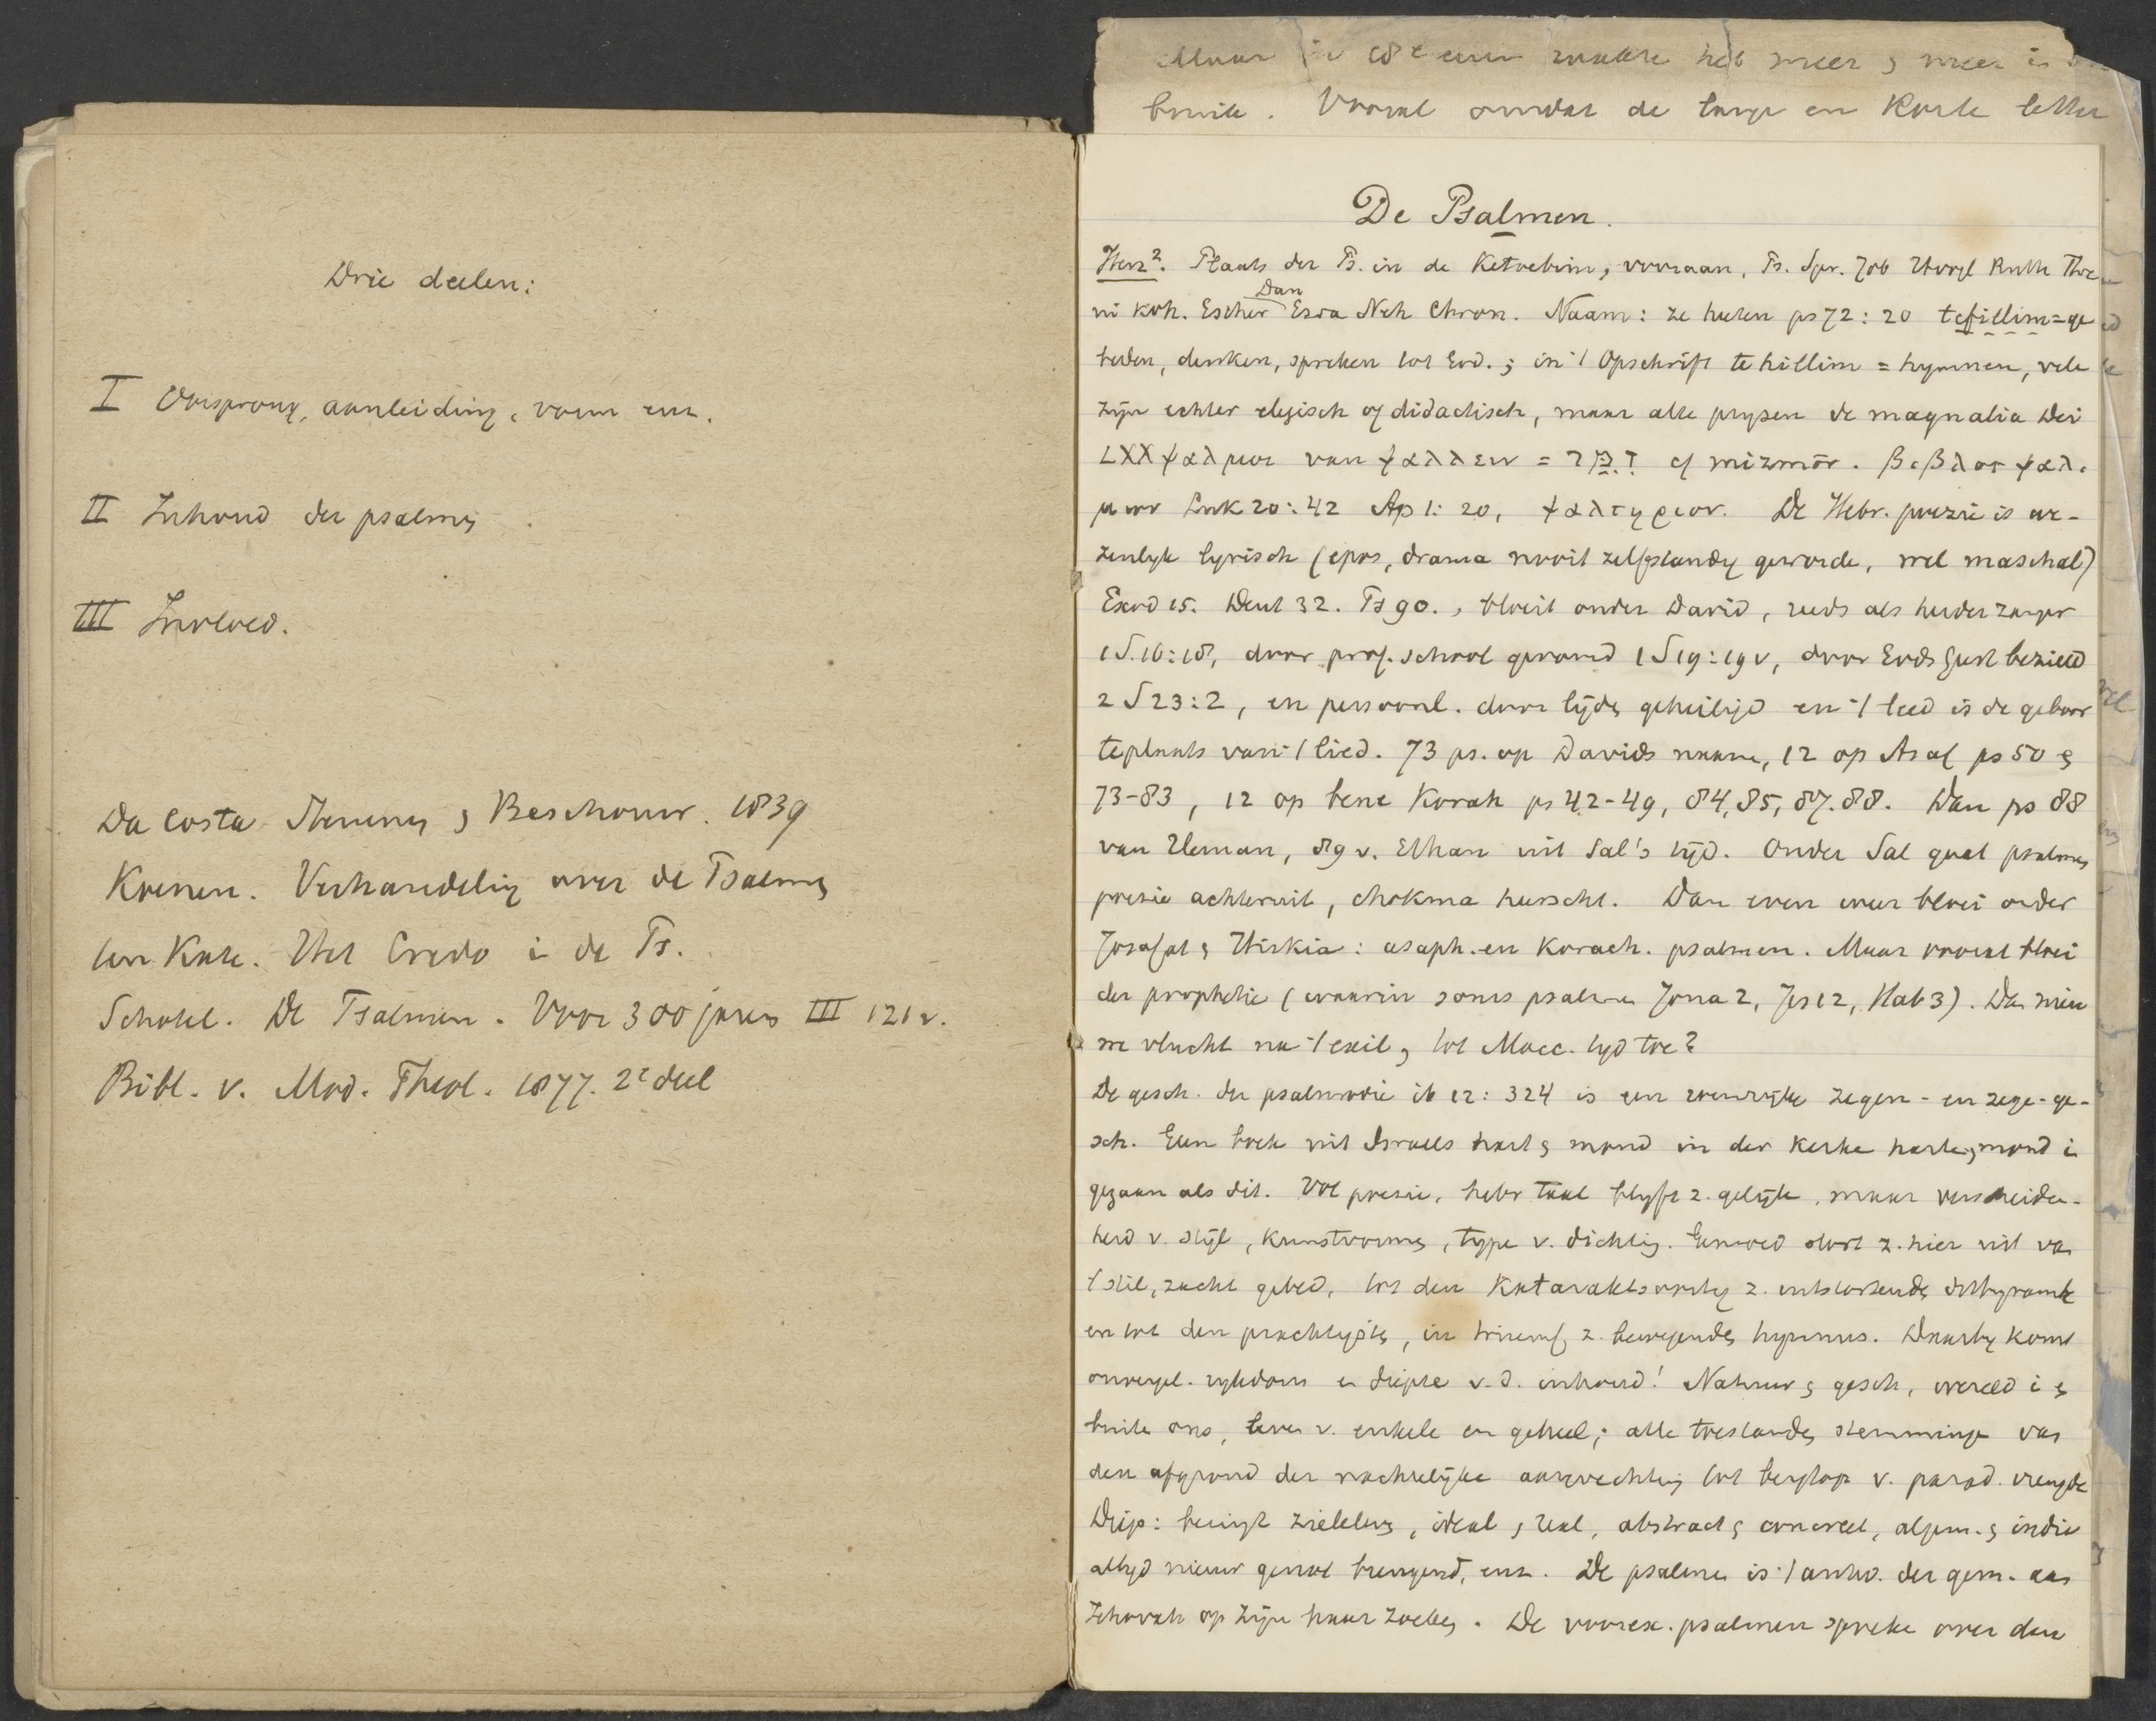 Drie deelen:
I Oorsprong, aanleiding, vorm enz.
II Inhoud der psalmen
III Invloed.
Da Costa Stemmen & Beschouw. 1839
Koenen. Verhandeling over de Psalmen
ten Kate. Het Credo i de Ps.
Schotel. De Psalmen. Voor 300 jaren III 121 v.
Bibl. v. Mod. Theol. 1877. 2e deel
Maar meer & meer is
. Vooral omdat de lange en korte letter
De Psalmen.
Herz². Plaats der Ps. in de Ketoebim, vooraan, Ps. Spr. Job Hoogl Ruth Thre
ni Koh. Esther Dan Esra Neh Chron. Naam: ze heeten ps 72:20 tefillim = ge
beden, denken, spreken tot God.; in 't Opschrift tehillim = hymnen, vele
zijn echter elegisch of didactisch, maar alle prijzen de magnalia Dei
LXX ψαλμοι van ψαλλειν = זמר cf mizmōr. βιβλος ψαλ-
μων Luk 20:42 Ap 1:20, ψαλτηριον. De Hebr. poezie is we-
zenlijk lyrisch (epos, drama nooit zelfstandig geworde, wel maschal)
Exod 15. Deut 32. Ps 90., bloeit onder David, reeds als herder zanger
1 S. 16:18, door prof. school gevormd 1 S 19:19 v, door Gods Geest bezield
2 S 23:2, en persoonl. door lijden geheiligd en 't leed is de geboor
teplaats van 't lied. 73 ps. op Davids naam, 12 op Asaf ps 50 &
73-83, 12 op bene Korah ps 42-49, 84, 85, 87. 88. Dan ps 88
van Heman, 89 v. Ethan uit Sal's tijd. Onder Sal gaat psalmen
poezie achteruit, chokma heerscht. Dan even weer bloei onder
Josafat & Hiskia: asaph. en Korach. psalmen. Maar vooral bloei
der prophetie (waarin soms psalmen Jona 2, Jes 12, Hab 3). Dan nieu
we vlucht na 't exil, tot Macc. tijd toe?
De gesch. der psalmodie ib 12:324 is een zegen- en zege-ge-
sch. Geen boek uit Israels hart & mond in der kerke hart & mond i
gegaan als dit. Vol poezie, hebr taal blijft z. gelijk, maar verscheiden-
heid v. stijl, kunstvormen, type v. dichting. Gemoed stort z. hier uit van
't stil, zacht gebed, tot den Kataraktsoortig z. uitstortende dithyrambe
en tot den prachtigsten, in triumf z. bewegenden hymnus. Daarbij komt
onvergel. rijkdom en diepte v. d. inhoud! Natuur & gesch, wereld i &
buiten ons, leven v. enkele en geheel; alle toestanden stemminge van
den afgrond der nachtelijke aanvechting tot bergtop v. parad. vreugde
Diep: bevrijgt zieleleven, ideal & real, abstract & concreet, algem. & indiv
altijd nieuw genot brengend, enz. De psalmen is 't antw. der gem. aan
Jehovah op zijn haar zoeken. De voorex. psalmen spreken over den